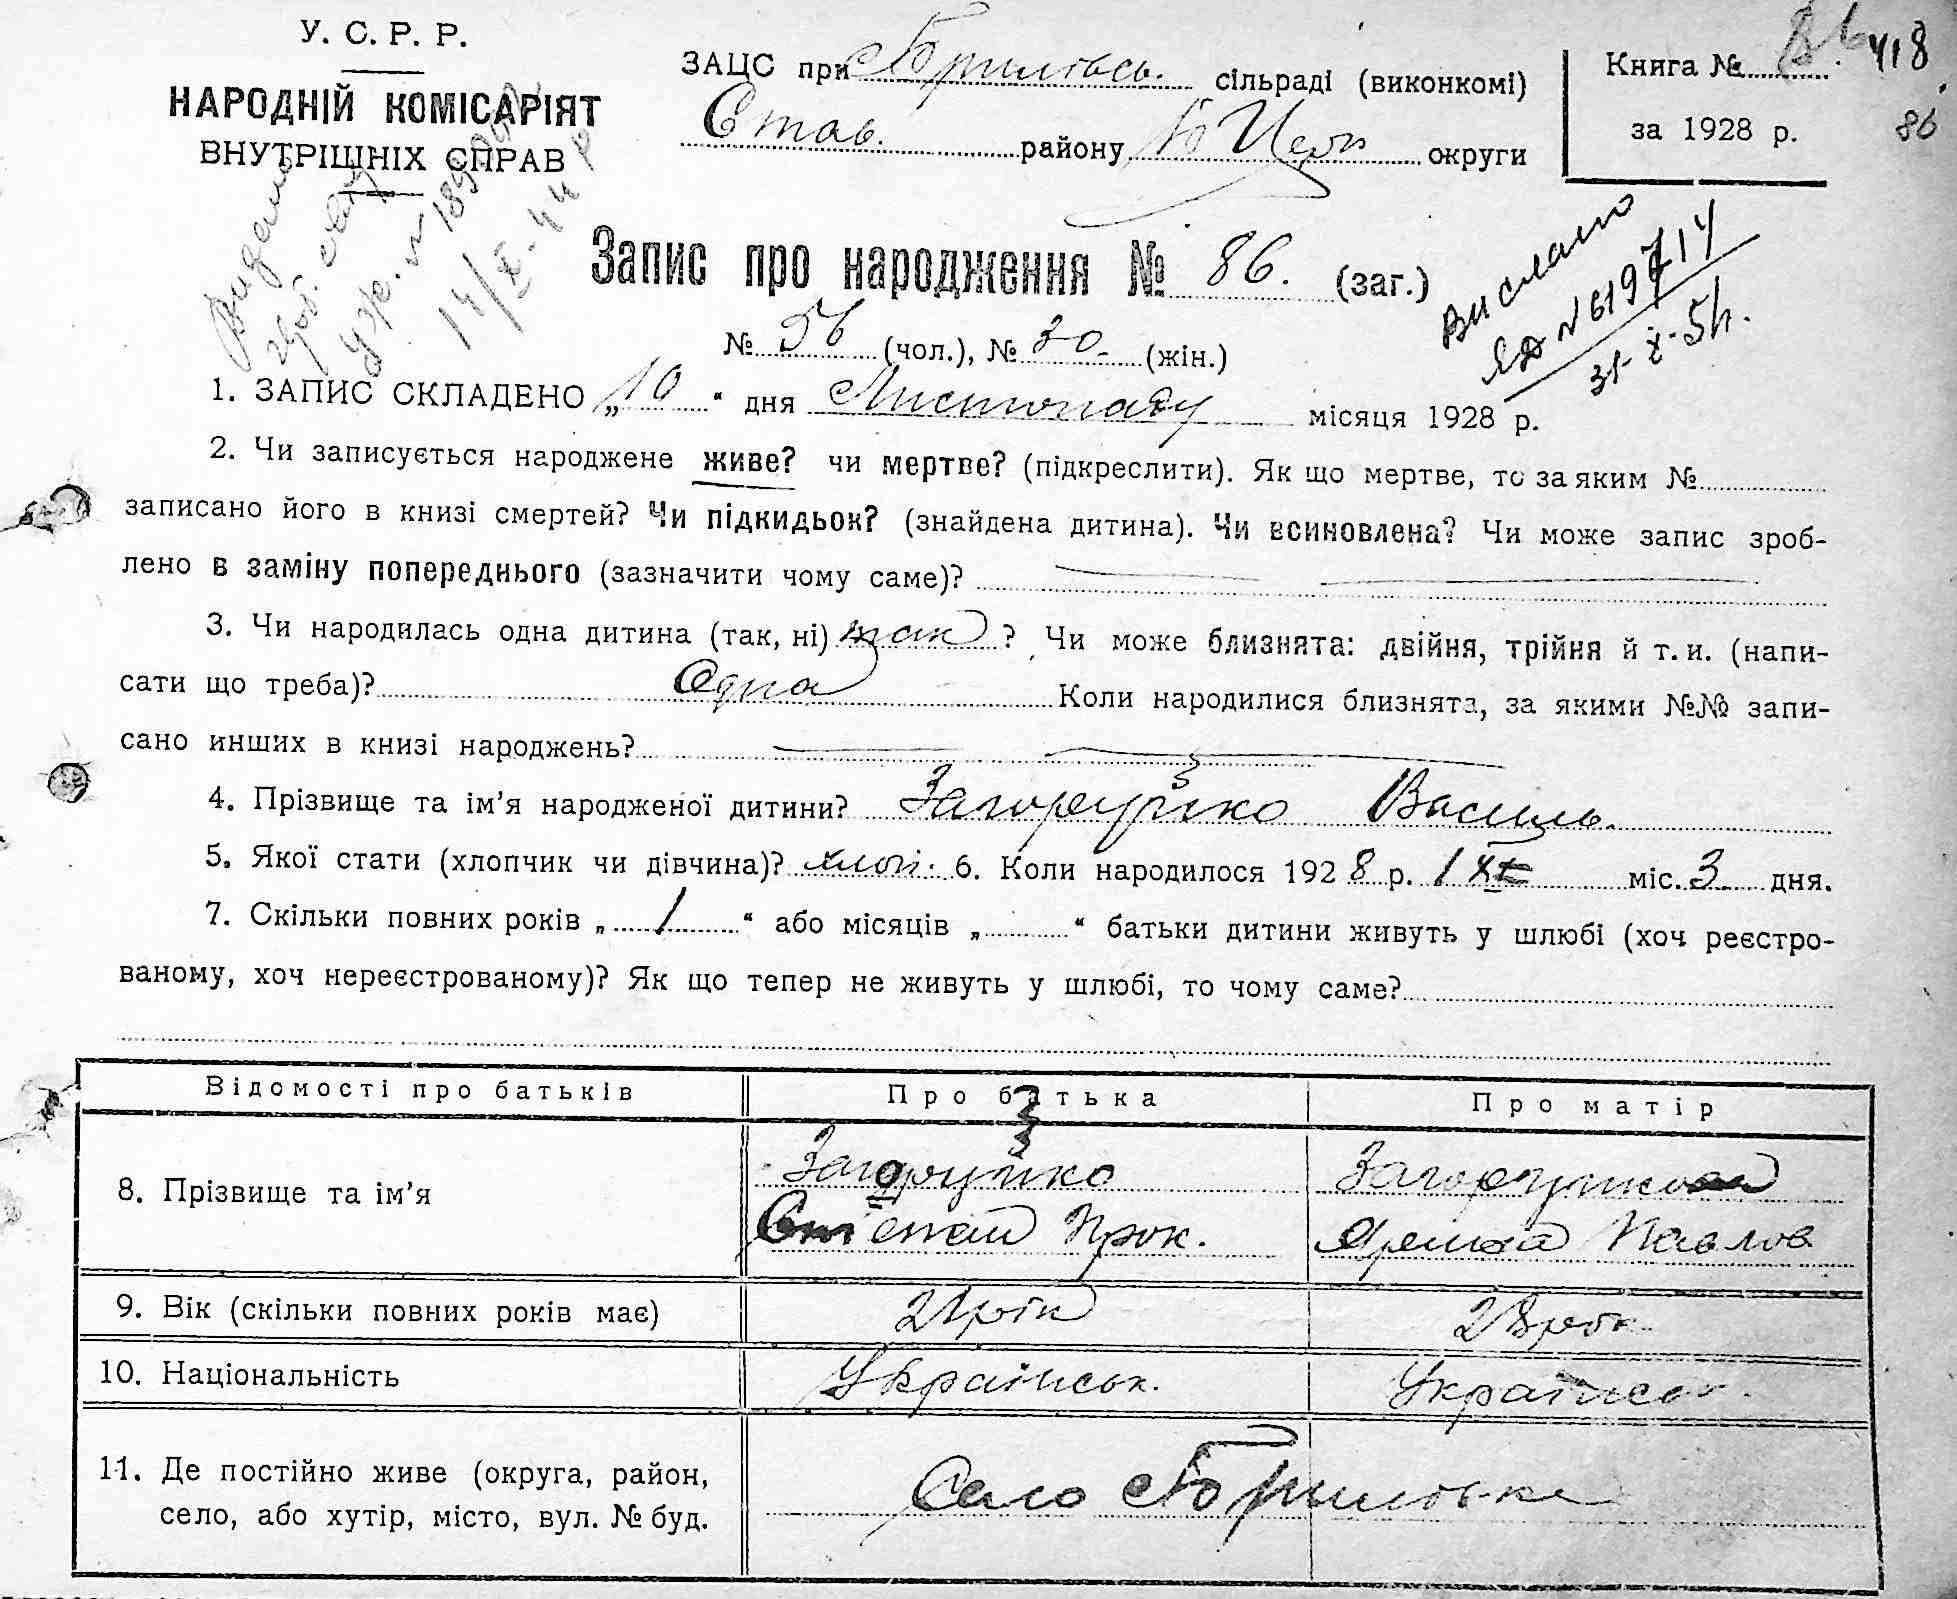 У. С. Р. Р.
НАРОДНІЙ КОМІСАРІЯТ
ВНУТРІШНІХ СПРАВ
ЗАЦС при сільраді (виконкомі)
Став. району Б Церк округи
Книга № 86 418
за 1928 р.
86
Видано
14/X-44 р
Запис про народження № 86. (заг.)
Вислано
ЯД №619714
31-X-54.
№ 56 (чол.), № 30. (жін.)
1. ЗАПИС СКЛАДЕНО „10“ дня Листопаду місяця 1928 р.
2. Чи записується народжене живе? чи мертве? (підкреслити). Як що мертве, то за яким №
записано його в книзі смертей? Чи підкидьок? (знайдена дитина). Чи всиновлена? Чи може запис зроб-
лено в заміну попереднього (зазначити чому саме)?
3. Чи народилась одна дитина (так, ні) так ? Чи може близнята: двійня, трійня й т. и. (напи-
сати що треба)? Одна Коли народилися близнята, за якими №№ запи-
сано инших в книзі народжень?
4. Прізвище та ім’я народженої дитини? Загоруйко Василь.
5. Якої стати (хлопчик чи дівчина)? хлоп. 6. Коли народилося 1928 р. XI міс. 3 дня.
7. Скільки повних років „ 1 “ або місяців „ “ батьки дитини живуть у шлюбі (хоч реєстро-
ваному, хоч нереєстрованому)? Як що тепер не живуть у шлюбі, то чому саме?
Відомості про батьків Про батька Про матір
8. Прізвище та ім’я Загоруйко Загоруйко
Степан Прок. Яриха Павлов
9. Вік (скільки повних років має) рік 28 рок
10. Національність Українськ. Українськ.
11. Де постійно живе (округа, район,
село, або хутір, місто, вул. № буд. Село